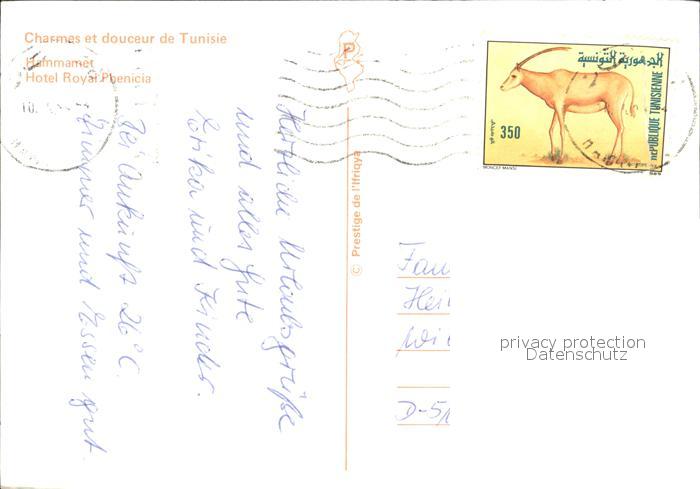 Charmes et douceur de Tunisie
Hammamet
Hotel Royal Phenicia
Herzliche Urlaubsgrüße
und alles Gute
Erika und Kinder.
Bei Ankunft 26°C.
Zimmer und Essen gut.
© Prestige de l'Ifriqya
الجمهورية التونسية
REPUBLIQUE TUNISIENNE
350
MONCEF MANSI
Fam
Hei
D-5
privacy protection
Datenschutz